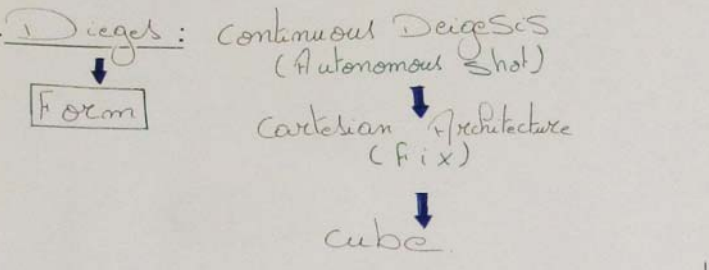 Dieges : Continuous DeigeSiS
(Autonomous Shot)
Form
Cartesian Architecture
(Fix)
cube